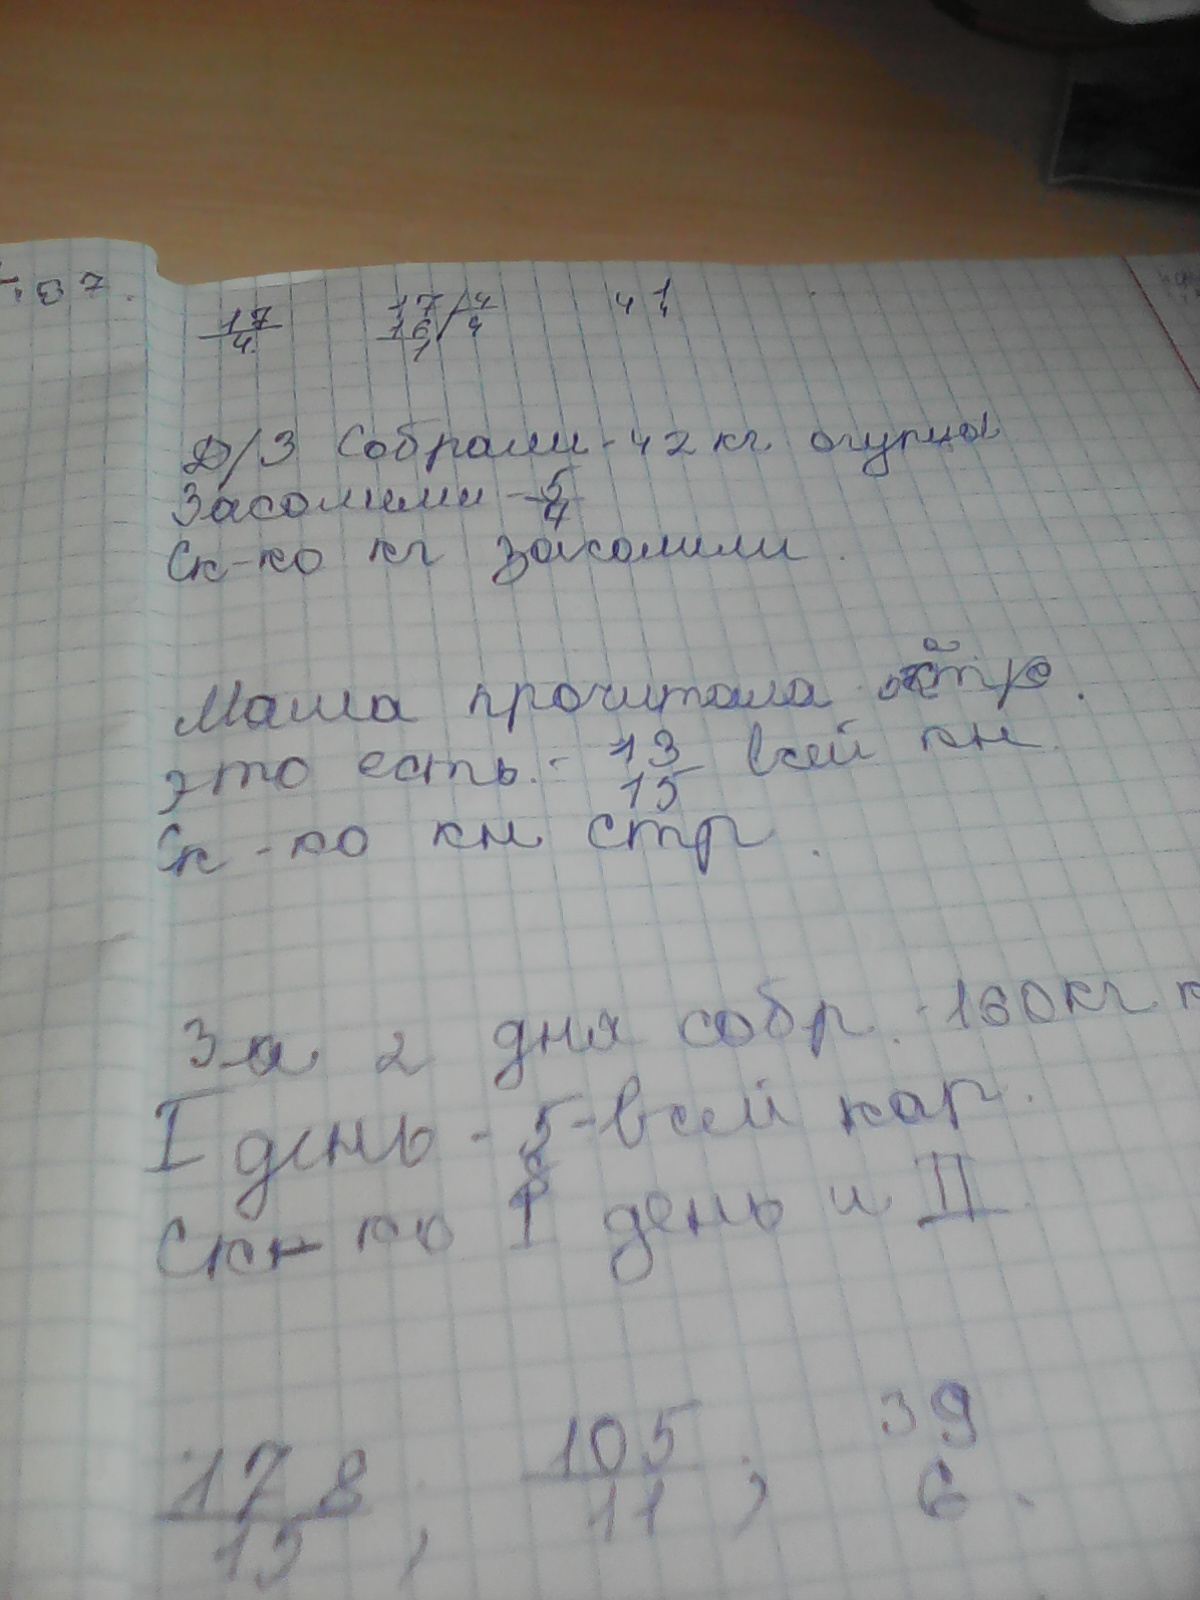 17/4 17/4 16 4 1 4 1/4
Д/З Собрали - 42 кг огурцы
Засолили - 5/7
Ск-ко кг засолили.
Маша прочитала стр.
это есть - 13/15 всей кн.
Ск-ко кн стр.
За 2 дня собр. - 160 кг
I день - 5/8 - всей кар.
Ск-ко I день и II
178/15, 105/11, 39/6.